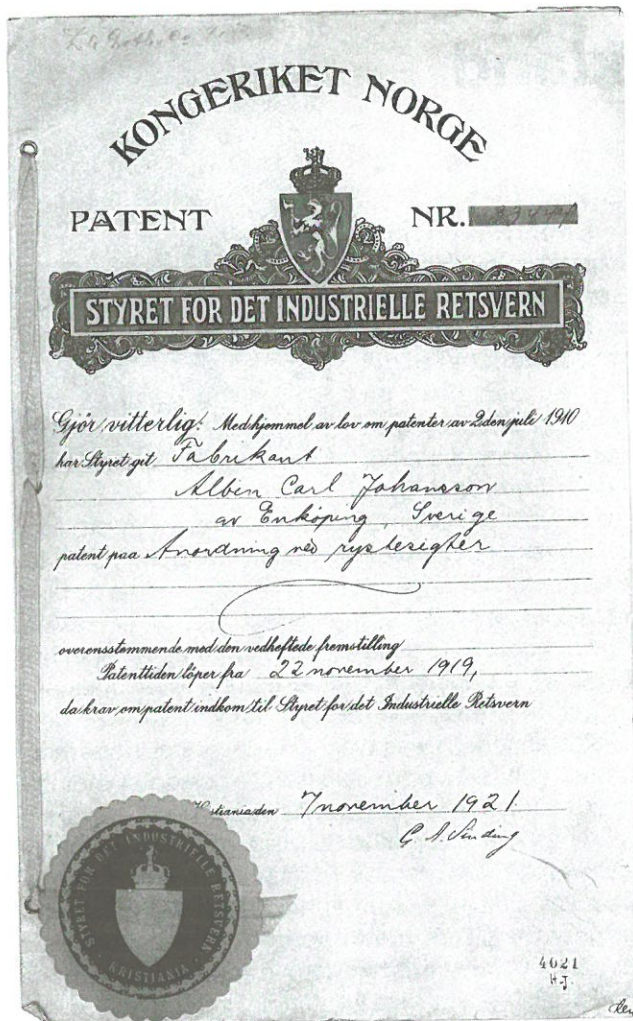 KONGERIKET NORGE
PATENT NR.
STYRET FOR DET INDUSTRIELLE RETSVERN
Gjör vitterlig: Medhjemmel av lov om patenter av 2den juli 1910
har Styret git Fabrikant
Albin Carl Johansson
av Enköping, Sverige
patent paa Anordning ved rystesigter
overensstemmende med den vedheftede fremstilling
Patenttiden löper fra 22 november 1919,
da krav om patent indkom til Styret for det Industrielle Retsvern
Kristiania den 7 november 1921.
G. A. Sinding
STYRET FOR DET INDUSTRIELLE RETSVERN
KRISTIANIA
4021
H.J.